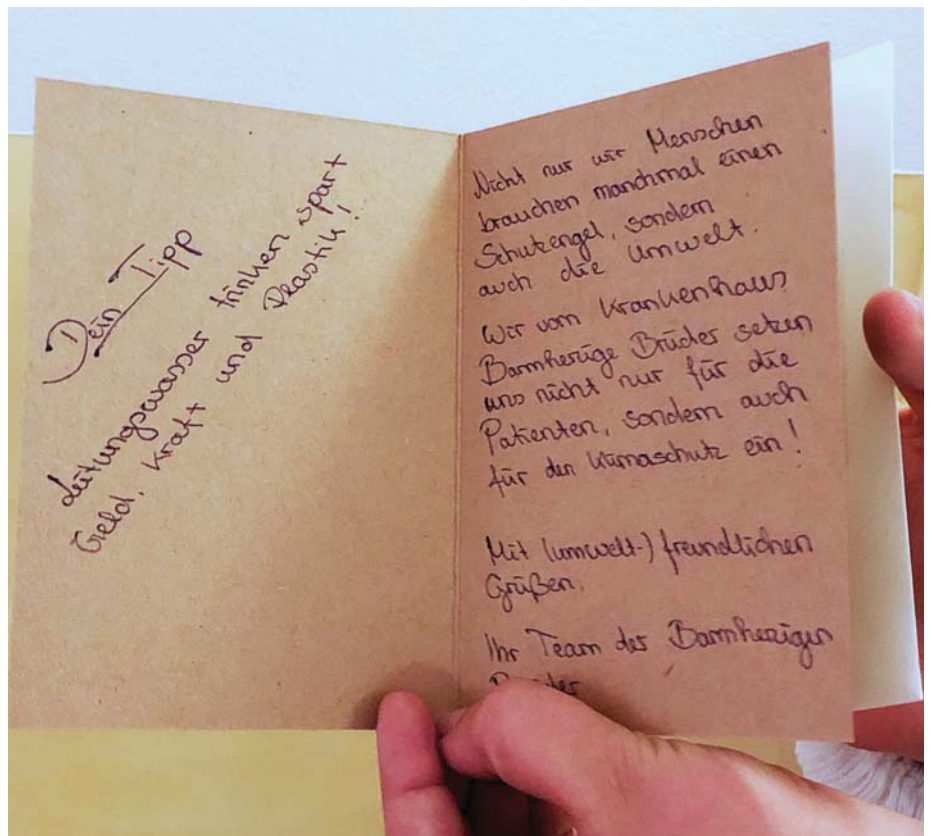 Dein Tipp
Leitungswasser trinken spart
Geld, Kraft und Plastik!
Nicht nur wir Menschen
brauchen manchmal einen
Schutzengel, sondern
auch die Umwelt.
Wir vom Krankenhaus
Barmherzige Brüder setzen
uns nicht nur für die
Patienten, sondern auch
für den Klimaschutz ein!
Mit (umwelt-) freundlichen
Grüßen,
Ihr Team der Barmherzigen